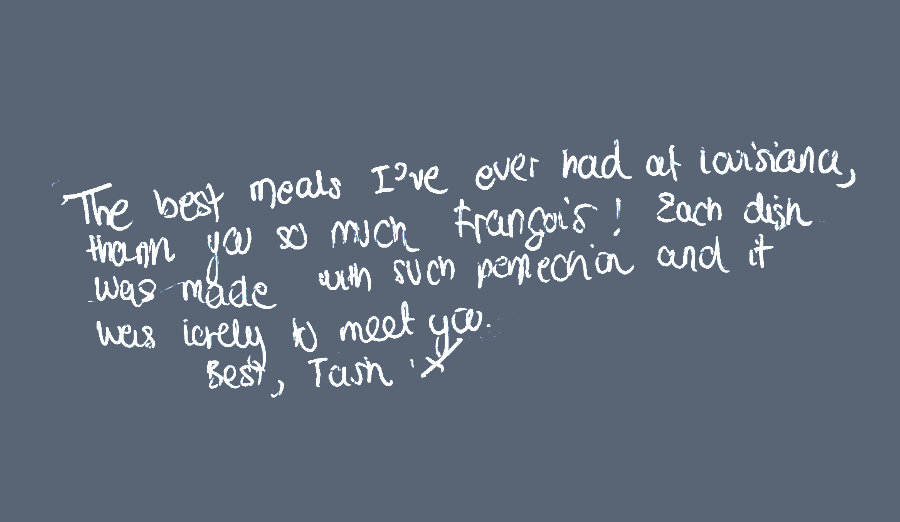 The best meals I've ever had at Louisiana,
thank you so much François! Each dish
was made with such perfection and it
was lovely to meet you.
Best, Tash x